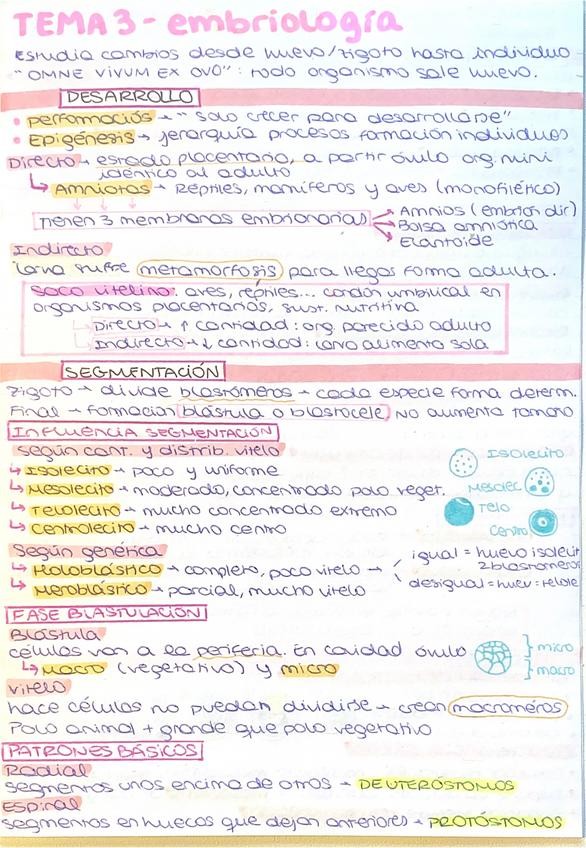 TEMA 3 - embriología
Estudia cambios desde huevo/zigoto hasta individuo
"OMNE VIVUM EX OVO": todo organismo sale huevo.
DESARROLLO
• performación → "solo crecer para desarrollarse"
• Epigénesis → jerarquía procesos formación individuos
Directo → estado placentario, a partir óvulo org. mini
idéntico al adulto
↳ Amniotas → Reptiles, mamíferos y aves (monofilético)
tienen 3 membranas embrionarias
Amnios (embrión dir)
Bolsa amniótica
Elantoide
Indirecto
larva sufre metamorfosis para llegar forma adulta.
Saco vitelino: aves, reptiles... cordón umbilical en
organismos placentarios, sust. nutritiva
Directo → ↑ cantidad: org. parecido adulto
Indirecto → ↓ cantidad: larva alimenta sola
SEGMENTACIÓN
zigoto → divide blastómeros → cada especie forma determ.
Final → formación blástula o blastocele, no aumenta tamaño
INFLUENCIA SEGMENTACIÓN
Según cant. y distrib. vitelo
↳ Isolecito → poco y uniforme
↳ Mesolecito → moderado, concentrado polo veget.
↳ Telolecito → mucho concentrado extremo
↳ Centrolecito → mucho centro
Isolecito
Mesolec
Telo
Centro
Según genética
↳ Holoblástico → completo, poco vitelo →
↳ Meroblástico → parcial, mucho vitelo
igual = huevo isolecit
2 blastómeros
desigual = huev = telole
FASE BLASTULACIÓN
Blástula
células van a la periferia. En cavidad óvulo
↳ Macro (vegetativo) y micro
micro
macro
Vitelo
hace células no puedan dividirse → crean macrómeros
Polo animal + grande que polo vegetativo
PATRONES BÁSICOS
Radial
segmentos unos encima de otros → DEUTERÓSTOMOS
Espiral
segmentos en huecos que dejan anteriores → PROTÓSTOMOS